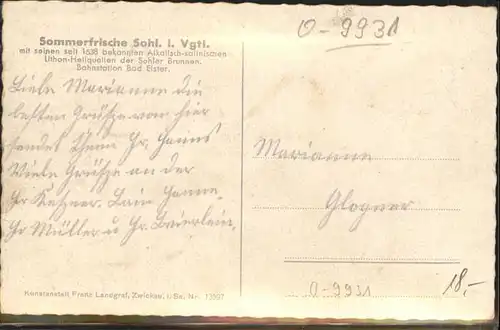 O-9931
Sommerfrische Sohl. i. Vgtl.
mit seinen seit 1638 bekannten Alkalisch-salinischen
Lithon-Heilquellen der Sohler Brunnen.
Bahnstation Bad Elster.
Liebe Marianne die
besten Grüße von hier
sendet Ihnen Fr.
Viele Grüße an der
Marianne
Glogner
Fr Müller u Fr.
Kunstanstalt Franz Landgraf, Zwickau i. Sa. Nr. 13507
O-9931
18,-